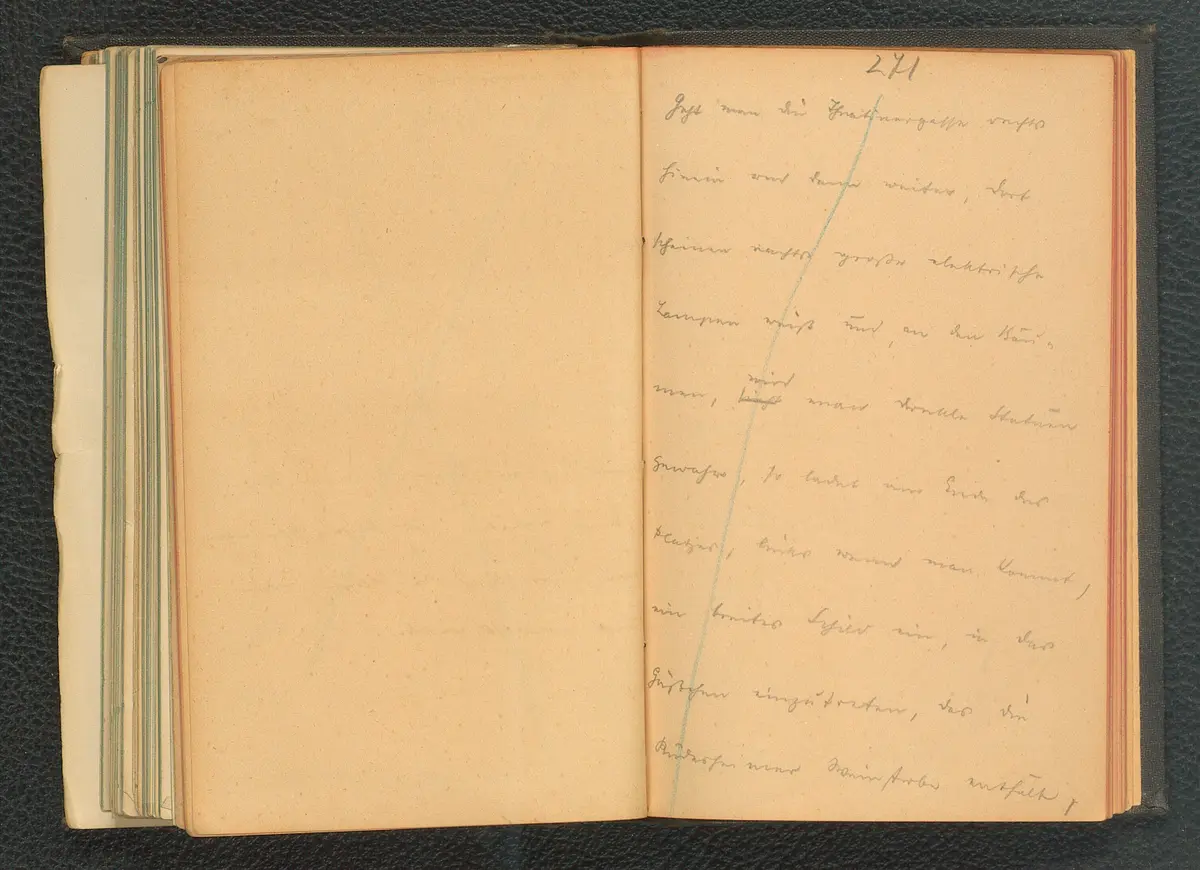 271
Geht man die Theatinergasse rechts
hinein und dann weiter, dort
scheinen nachts große elektrische
Lampen weiß und, an den Bäu-
men, wird
man dunkle Statuen
gewahr, so ladet am Ende des
Platzes, links wenn man kommt,
ein breites Schild ein, in das
Gäßchen einzutreten, das die
Rüdesheimer Weinstube enthält,